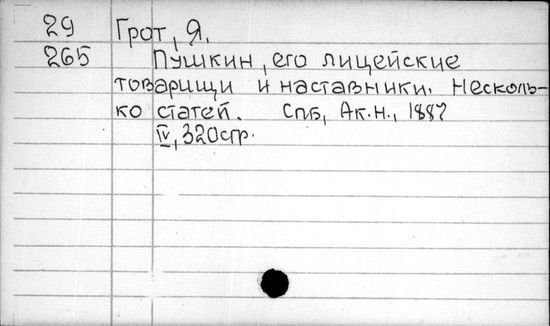 29 Грот, Я.
265 Пушкин, его лицейские
товарищи и наставники. Несколь-
ко статей. Спб, Ак.н., 1887
IV, 320стр.